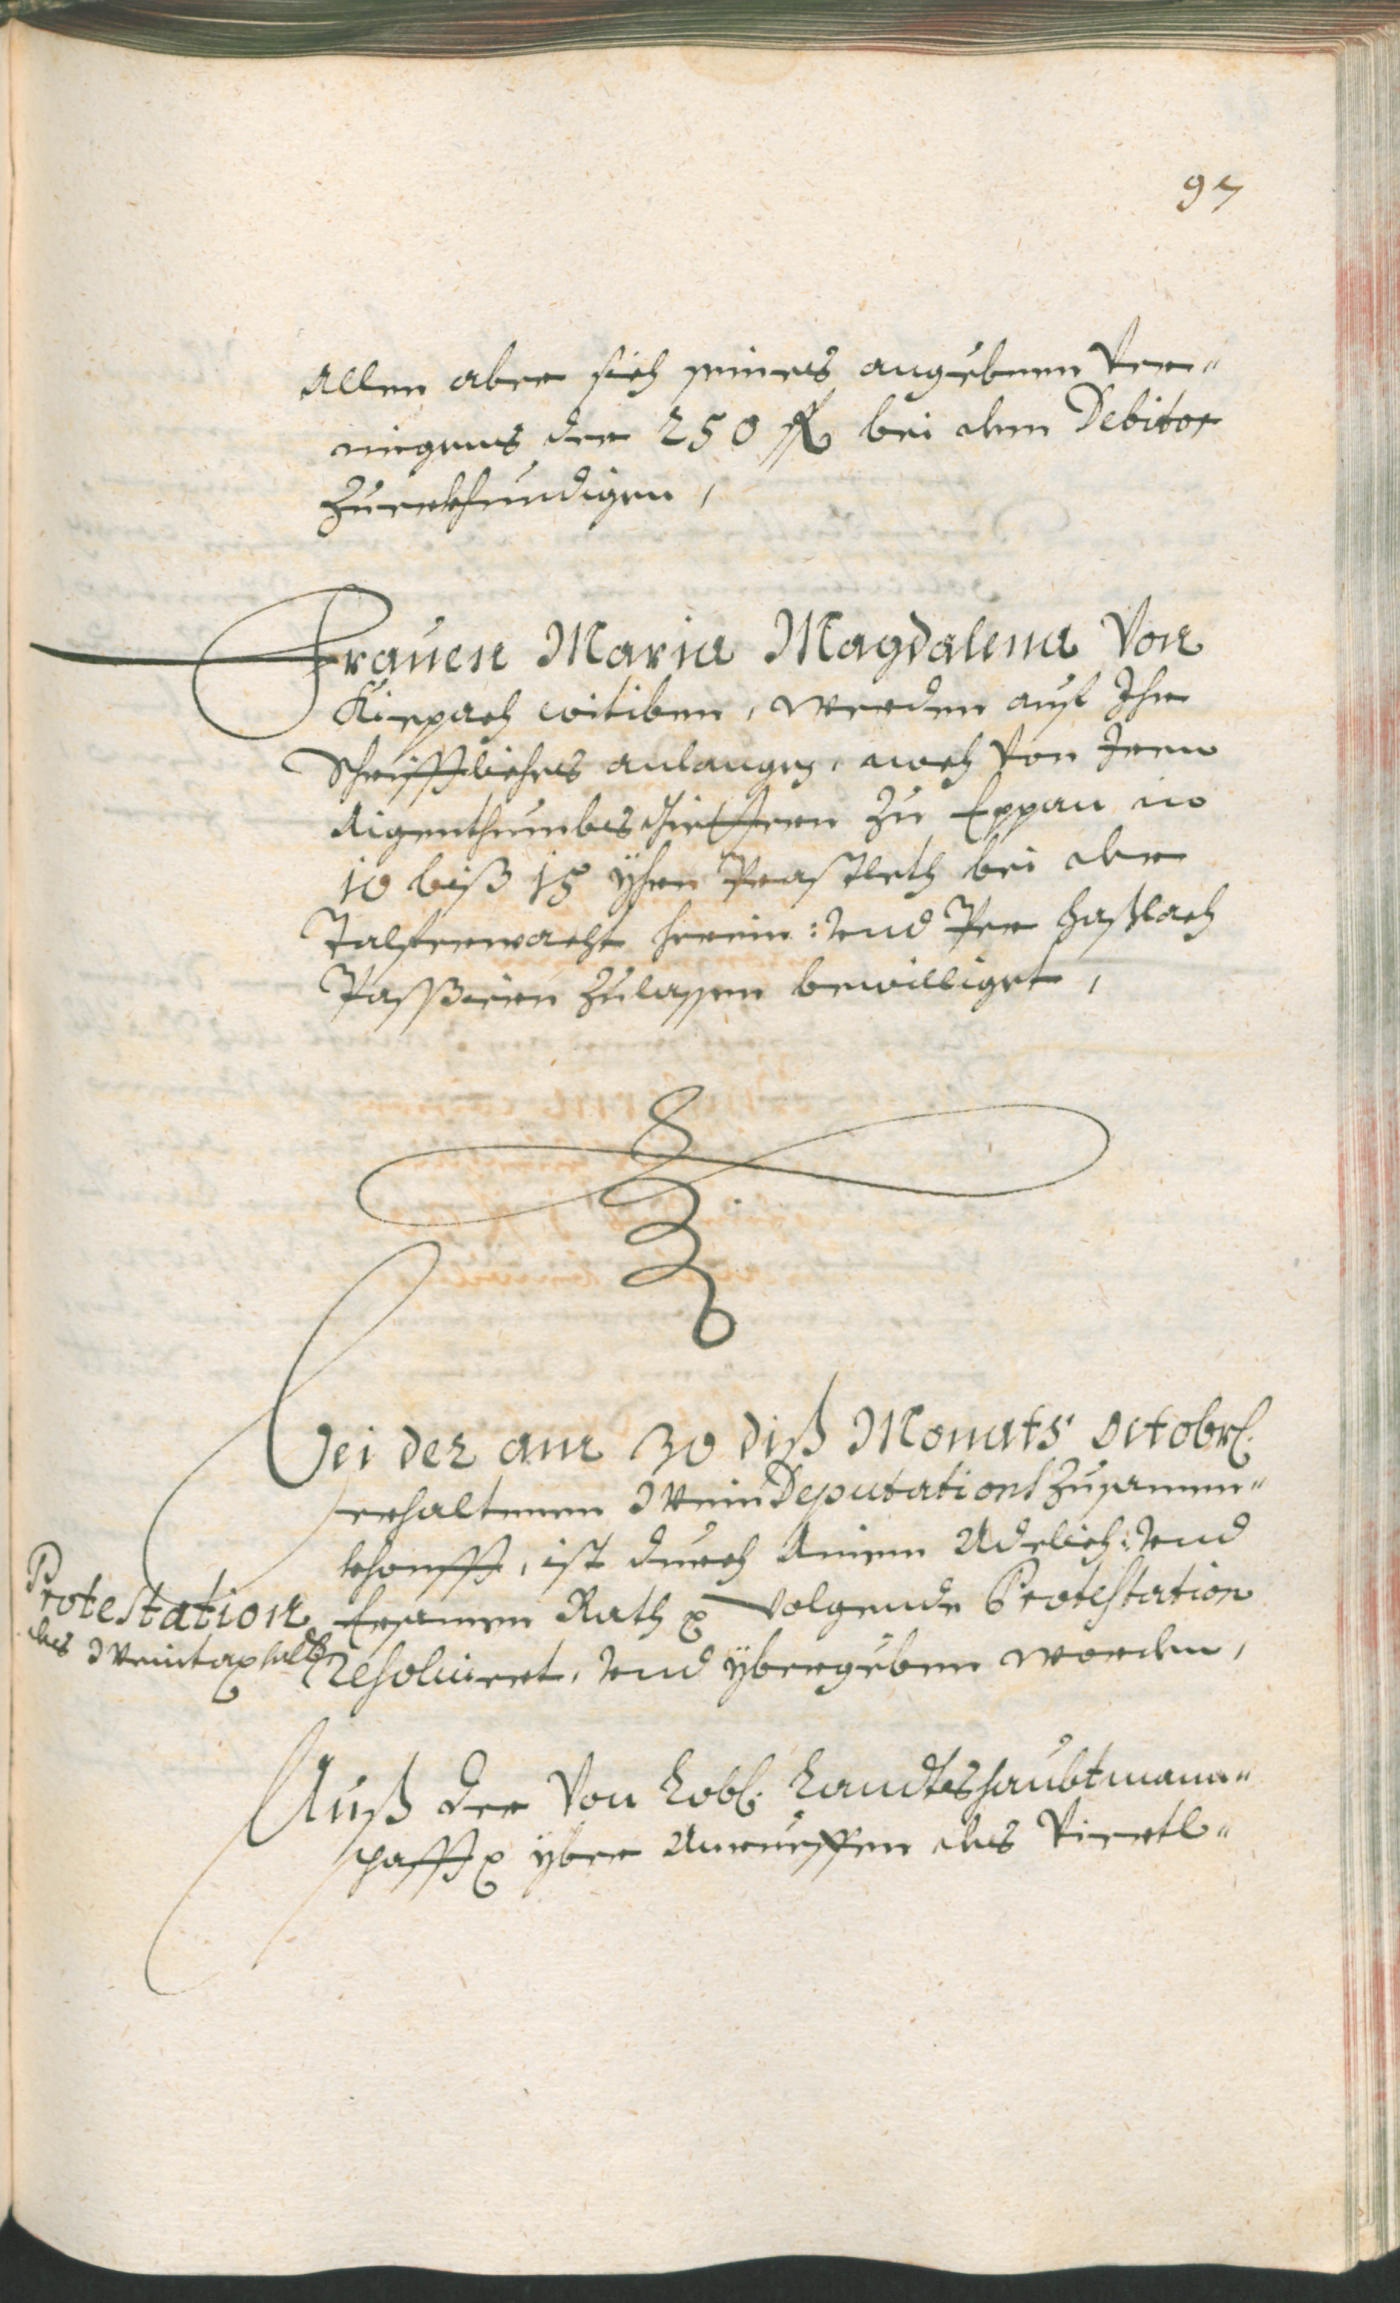 97
allen aber sich seines angebnen Ver-
migens der 250 fl bei dem Debitor
zuerkhundigen,
Frauen Maria Magdalena Von
Kiepach witiben, werden auf Ihr
Schrifftliches anlangen, noch Von Irem
Aigenthumbs in Eppan in
10 biß 15 Yhrn Praschleth bei der
Talferwacht herein: Und Per haßlach
Passiern zulassen bewilliget,
Bei der am 30 diß Monats Octobr:
erhaltenen Wein Deputations Zusamen-
khonfft, ist durch Ainem Adelich: Und
Ersamen Rath volgende Protestation
Resolviert, Und ybergeben worden,
Protestation
des Weintax halb
Auß der Von Lobl: Landtshaubtmann-
schafft yber Anrueffen des Viertl-